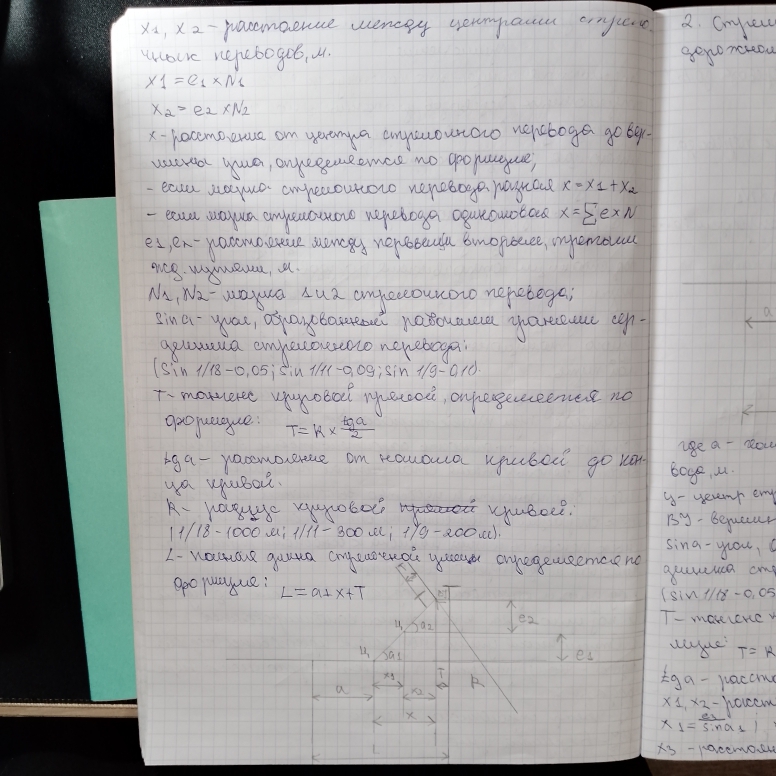 x1, x2 - расстояние между центрами стрело-
чных переводов, м.
x1 = e1 × N1
x2 = e2 × N2
x - расстояние от центра стрелочного перевода до вер-
шины угла, определяется по формуле;
- если марка стрелочного перевода разная x = x1 + x2
- если марка стрелочного перевода одинаковая x = ∑ e × N
e1, en - расстояние между первым и вторым, третьим
жд. путями, м.
N1, N2 - марка 1 и 2 стрелочного перевода;
sina - угол, образованный рабочими гранями сер-
дечника стрелочного перевода:
(sin 1/18 - 0,05; sin 1/11 - 0,09; sin 1/9 - 0,11).
T - тангенс круговой прямой, определяется по
формуле: T = R × tga/2
tga - расстояние от начала кривой до кон-
ца кривой.
R - радиус круговой прямой кривой.
(1/18 - 1000 м; 1/11 - 300 м; 1/9 - 200 м).
L - полная длина стрелочной улицы определяется по
формуле: L = a + x + T
T
e2
a2
e1
a1
a
x1
x2
T
R
x
L
2. Стрел
дорожном
a
где a -
вода, м.
Ц - центр ст
ВУ - вершин
sina - угол,
дечника ст
(sin 1/18 - 0,05
T - тангенс
муле: T = R
tga - расст
x1, x2 - расст
x1 = e1/sina1;
x3 - расстоян